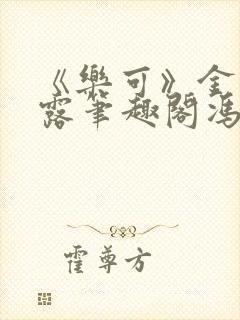 《樂可》金
露筆趣閣馮
霍尊方